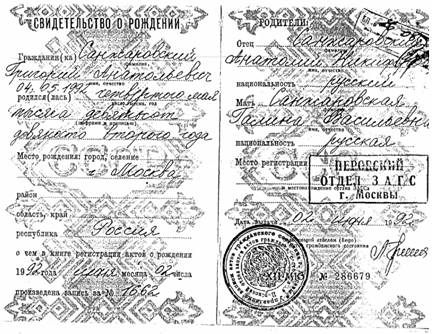 СВИДЕТЕЛЬСТВО О РОЖДЕНИИ
Гражданин(ка) Санжаровский
фамилия
Григорий Анатольевич
имя, отчество
родился(лась) 04.05.199 четвертого мая
число, месяц, год
тысяча девятьсот
девяносто второго года
Место рождения: город, селение
г. Москва
район
область, край
республика Россия
о чем в книге регистрации актов о рождении
1992 года июня месяца 02 числа
произведена запись за № 1662
РОДИТЕЛИ
Отец Санжаровский
Анатолий
имя, отчество
национальность русский
Мать Санжаровская
Галина Васильевна
имя, отчество
национальность русская
Место регистрации ПЕРОВСКИЙ
ОТДЕЛ ЗАГС
г. Москвы
Дата выдачи 02 июня 1992
№ 286679